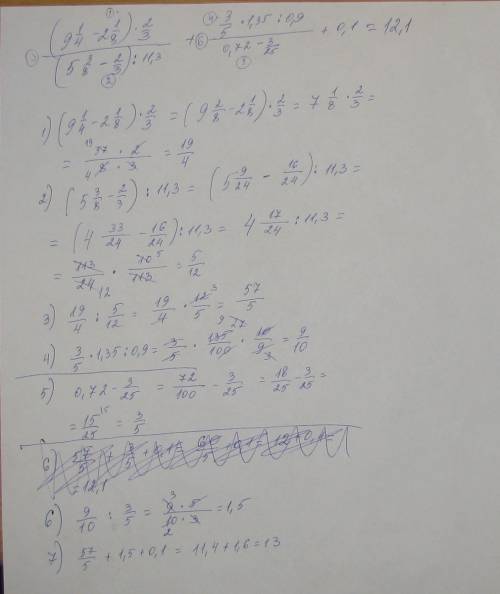 ① ④
(9 1/4 - 2 1/8) · 2/3 / (5 3/8 - 2/3) : 11,3 + ⑥ 3/5 · 1,35 : 0,9 / 0,72 - 3/25 + 0,1 = 12,1
③ ② ⑤
1) (9 1/4 - 2 1/8) · 2/3 = (9 2/8 - 2 1/8) · 2/3 = 7 1/8 · 2/3 =
= 19 57 · 2 / 4 8 · 3 = 19/4
2) (5 3/8 - 2/3) : 11,3 = (5 9/24 - 16/24) : 11,3 =
= (4 33/24 - 16/24) : 11,3 = 4 17/24 : 11,3 =
= 113/24 12 · 10 5/113 = 5/12
3) 19/4 : 5/12 = 19/4 · 12 3/5 = 57/5
4) 3/5 · 1,35 : 0,9 = 3/5 · 135 9 27/100 · 10/9 3 = 9/10
5) 0,72 - 3/25 = 72/100 - 3/25 = 18/25 - 3/25 =
= 15/25 15 = 3/5
6)
= 12,1
6) 9/10 : 3/5 = 3 9 · 5 / 10 · 3 2 = 1,5
7) 57/5 + 1,5 + 0,1 = 11,4 + 1,6 = 13